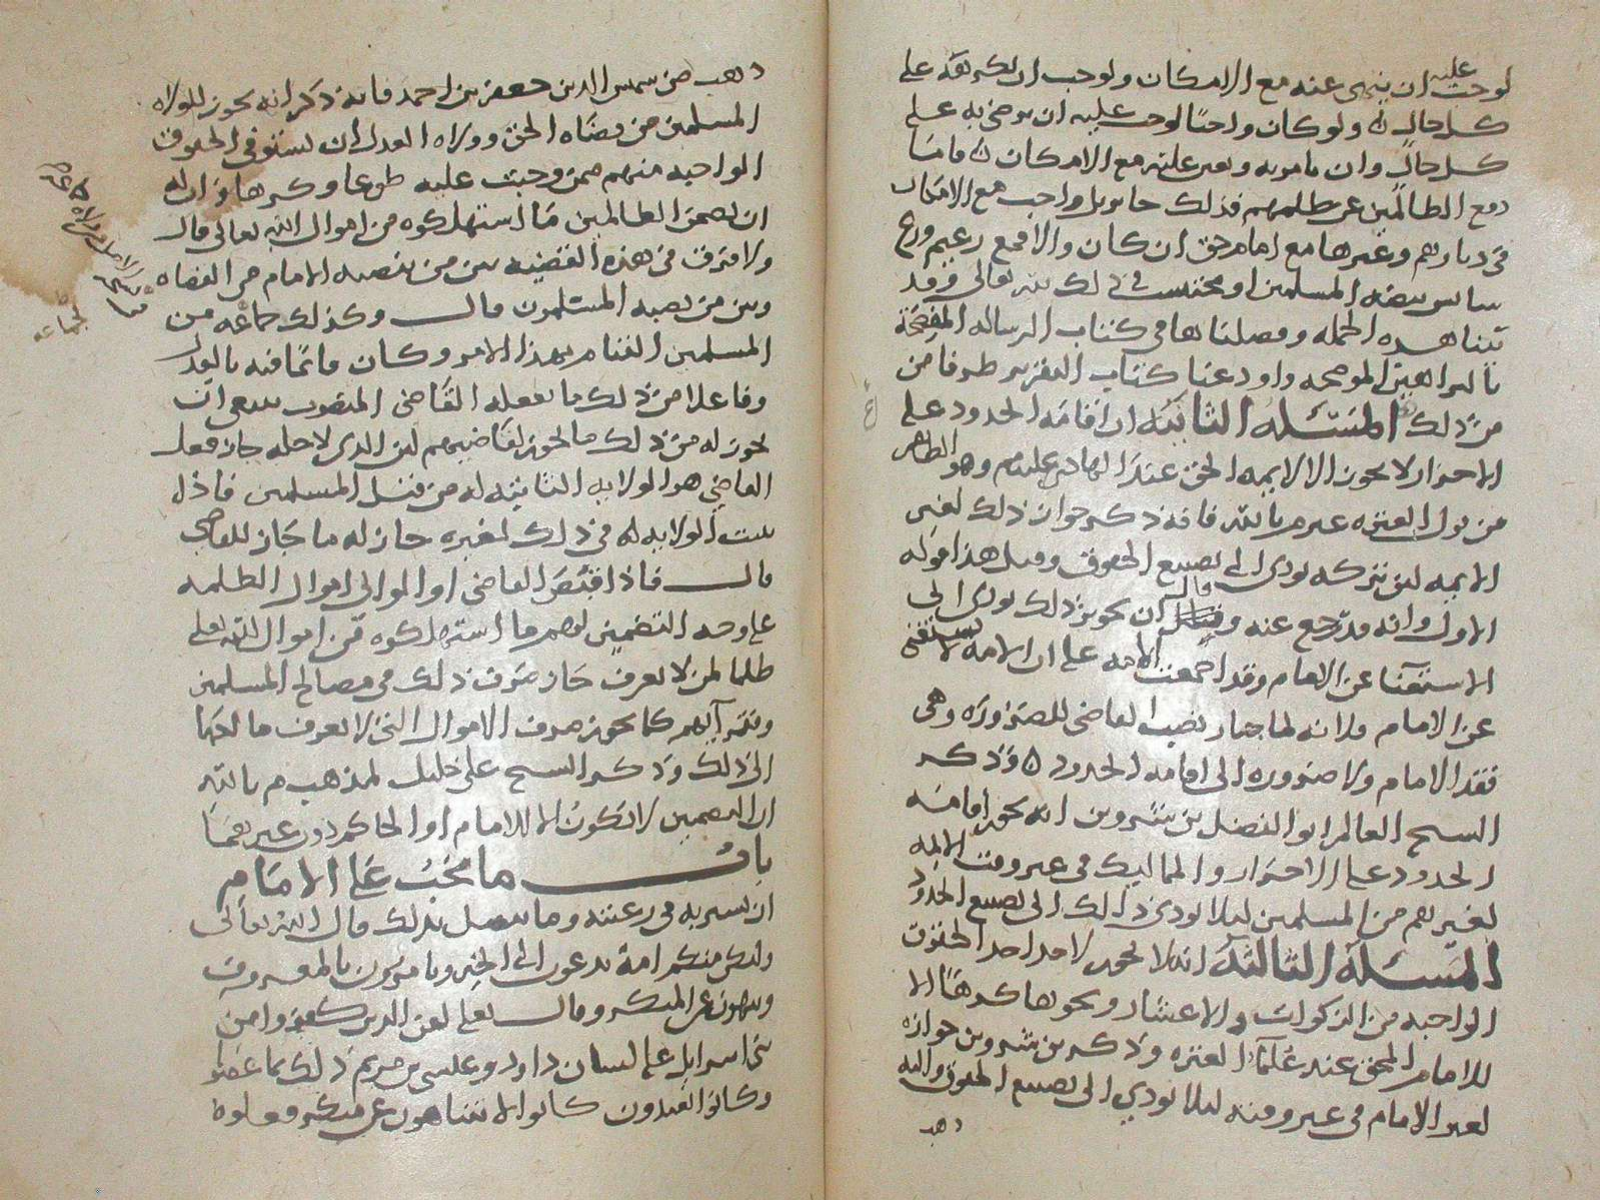 لوجب عليه ان ينهى عنه مع الامكان ولوجب ان يكرهه على
كل حال ولو كان واجبا لوجب عليه ان يرضى به على
كل حال وان يامر به ويعين عليه مع الامكان فاما
دفع الظالمين عن ظلمهم فذلك جايز بل واجب مع الامكان
في ديارهم وغيرها مع امام حق ان كان والا فمع زعيم ورع
سايس بيضة المسلمين او محتسب في ذلك لله تعالى وقد
بينا هذه الجمله وفصلناها في كتاب الرساله المفصحة
بالبراهين الموضحه واودعنا كتاب التقرير طرفا من
من ذلك المسئلة الثانية ان اقامة الحدود على
الاحرار لا يجوز الا لايمة الحق عند الهادي عليلم وهو الظاهر
من قول العترة غير م بالله فانه ذكر جواز ذلك لغير
الايمه لان تركه يودي الى تضييع الحقوق وقيل هذا قوله
الاول وانه قد رجع عنه وقال ان تجويز ذلك يودي الى
الاستغنا عن الامام وقد اجمعت الامه على ان الامة لا تستغني
عن الامام ولانه لما جاز نصب القاضي للضرورة وهي
فقد الامام ولا ضروره الى اقامه الحدود وذكر
السيح العالم ابو الفضل بن شروين انه يجوز اقامة
الحدود على الاحرار والمماليك في غير وقت الايمه
لغيرهم من المسلمين ليلا يودي ذلك الى تضييع الحدود
المسئلة الثالثة انه لا يجوز لاحد اخذ الحقوق
الواجبه من الزكوات والاعشار ونحوها كرها الا
للامام المحق عند علما العترة وذكر بن شروين جوازه
لغير الامام في غير وقته ليلا يودي الى تضييع الحقوق واليه
ذهب
ذهب من شمس الدين جعفر بن احمد فانه ذكر انه يجوز للولاه
المسلمين من قضاه الحق وولاه العدل ان تستوفي الحقوق
الواجبه منهم ممن وجبت عليه طوعا وكرها وان له
ان يضمن الظالمين ما استهلكوه من اموال الله تعالى قال
ولا فرق في هذه القضيه بين من ينصبه الامام من القضاه
وبين من نصبه المسلمون قال وكذلك جماعه من
المسلمين القيام بهذا الامر وكان قائما فيه بالعدل
وفاعلا من ذلك ما يفعله القاضي المنصوب ينبغي ان
يجوز له من ذلك ما يجوز لقاضيهم لان الذي لاجله جاز فعل
القاضي هو الولايه الثابته له من قبل المسلمين فاذا
ثبت الولايه له في ذلك لغيره جاز له ما جاز للقاضي
قال فاذا قبض القاضي او الوالي اموال الظلمه
على وجه التضمين لهم ما استهلكوه من اموال الله تعالى
ظلما لمن لا يعرف جاز صرف ذلك في مصالح المسلمين
وفقرآيهم كما يجوز صرف الاموال التي لا يعرف مالكها
الى ذلك وذكر السيح علي خليل لمذهب م بالله
ان التضمين لا يكون الا للامام او الحاكم دون غيرهما
باب ما يجب على الامام
ان يسير به في رعيته وما يتصل بذلك قال الله تعالى
ولتكن منكم امة يدعون الى الخير ويامرون بالمعروف
وينهون عن المنكر وقال تعالى لعن الذين كفروا من
بني اسرايل على لسان داود وعيسى بن مريم ذلك بما عصوا
وكانوا يعتدون كانوا لا يتناهون عن منكر فعلوه